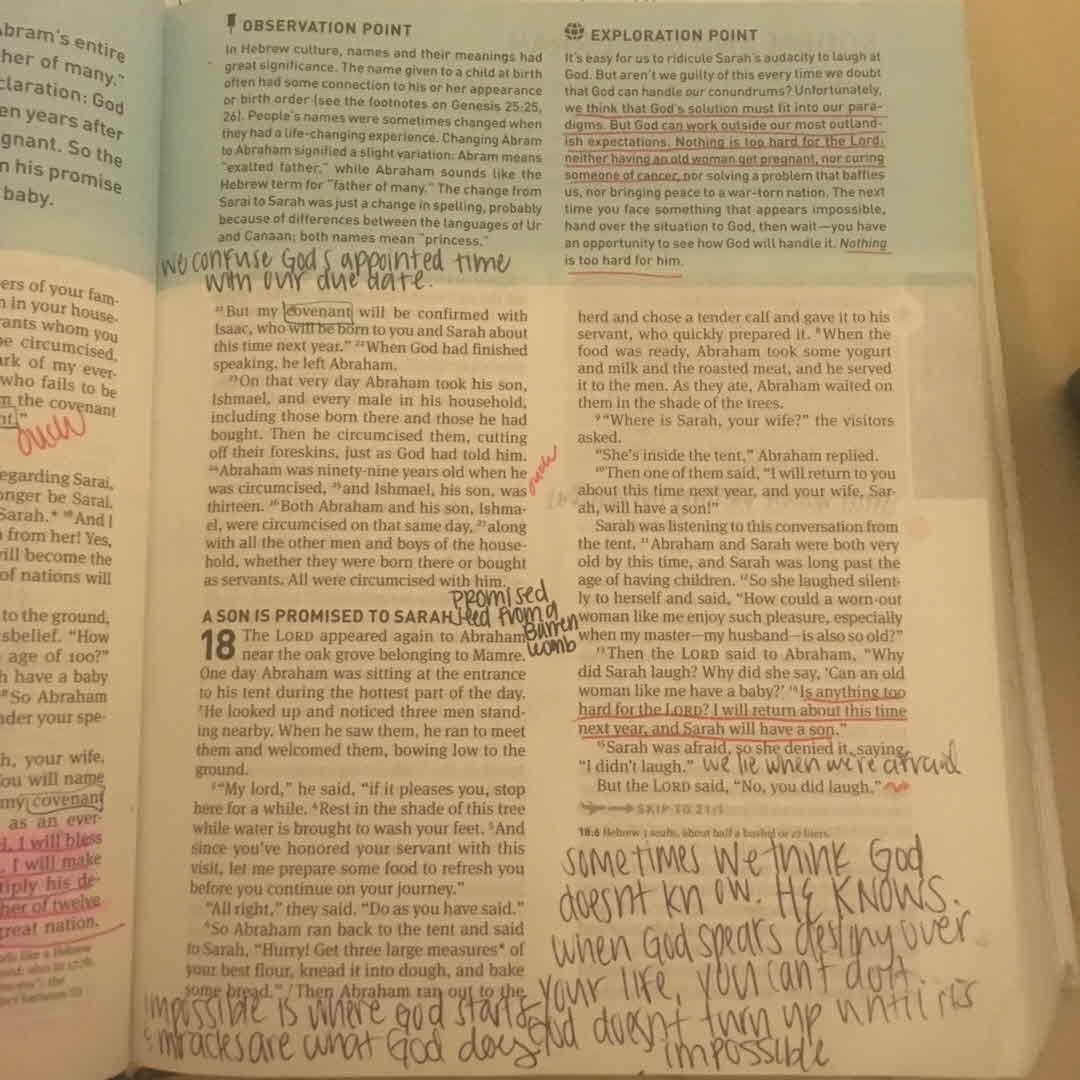 Abram's entire
her of many."
claration: God
en years after
gnant. So the
n his promise
baby.
ers of your fam-
n in your house-
ants whom you
be circumcised,
ark of my ever-
who fails to be
m the covenant
nt."
ouch
egarding Sarai,
onger be Sarai.
Sarah.* 16And I
from her! Yes,
ill become the
of nations will
to the ground,
sbelief. "How
age of 100?"
h have a baby
18So Abraham
nder your spe-
h, your wife,
You will name
my covenant
as an ever-
I will bless
. I will make
tiply his de-
her of twelve
great nation.
OBSERVATION POINT
In Hebrew culture, names and their meanings had
great significance. The name given to a child at birth
often had some connection to his or her appearance
or birth order (see the footnotes on Genesis 25:25,
26). People's names were sometimes changed when
they had a life-changing experience. Changing Abram
to Abraham signified a slight variation: Abram means
"exalted father," while Abraham sounds like the
Hebrew term for "father of many." The change from
Sarai to Sarah was just a change in spelling, probably
because of differences between the languages of Ur
and Canaan; both names mean "princess."
we confuse God's appointed time
with our due date.
21But my covenant will be confirmed with
Isaac, who will be born to you and Sarah about
this time next year." 22When God had finished
speaking, he left Abraham.
23On that very day Abraham took his son,
Ishmael, and every male in his household,
including those born there and those he had
bought. Then he circumcised them, cutting
off their foreskins, just as God had told him.
24Abraham was ninety-nine years old when he
was circumcised, 25and Ishmael, his son, was
thirteen. 26Both Abraham and his son, Ishma-
el, were circumcised on that same day, 27along
with all the other men and boys of the house-
hold, whether they were born there or bought
as servants. All were circumcised with him.
ouch
A SON IS PROMISED TO SARAH
promised
seed from a
Barren
womb
18 The LORD appeared again to Abraham
near the oak grove belonging to Mamre.
One day Abraham was sitting at the entrance
to his tent during the hottest part of the day.
2He looked up and noticed three men stand-
ing nearby. When he saw them, he ran to meet
them and welcomed them, bowing low to the
ground.
3"My lord," he said, "if it pleases you, stop
here for a while. 4Rest in the shade of this tree
while water is brought to wash your feet. 5And
since you've honored your servant with this
visit, let me prepare some food to refresh you
before you continue on your journey."
"All right," they said. "Do as you have said."
6So Abraham ran back to the tent and said
to Sarah, "Hurry! Get three large measures* of
your best flour, knead it into dough, and bake
some bread." 7Then Abraham ran out to the
impossible is where God starts
& miracles are what God does
EXPLORATION POINT
It's easy for us to ridicule Sarah's audacity to laugh at
God. But aren't we guilty of this every time we doubt
that God can handle our conundrums? Unfortunately,
we think that God's solution must fit into our para-
digms. But God can work outside our most outland-
ish expectations. Nothing is too hard for the Lord:
neither having an old woman get pregnant, nor curing
someone of cancer, nor solving a problem that baffles
us, nor bringing peace to a war-torn nation. The next
time you face something that appears impossible,
hand over the situation to God, then wait—you have
an opportunity to see how God will handle it. Nothing
is too hard for him.
herd and chose a tender calf and gave it to his
servant, who quickly prepared it. 8When the
food was ready, Abraham took some yogurt
and milk and the roasted meat, and he served
it to the men. As they ate, Abraham waited on
them in the shade of the trees.
9"Where is Sarah, your wife?" the visitors
asked.
"She's inside the tent," Abraham replied.
10Then one of them said, "I will return to you
about this time next year, and your wife, Sar-
ah, will have a son!"
Sarah was listening to this conversation from
the tent. 11Abraham and Sarah were both very
old by this time, and Sarah was long past the
age of having children. 12So she laughed silent-
ly to herself and said, "How could a worn-out
woman like me enjoy such pleasure, especially
when my master—my husband—is also so old?"
13Then the LORD said to Abraham, "Why
did Sarah laugh? Why did she say, 'Can an old
woman like me have a baby?' 14Is anything too
hard for the LORD? I will return about this time
next year, and Sarah will have a son."
15Sarah was afraid, so she denied it, saying,
"I didn't laugh." we lie when we're afraid
But the LORD said, "No, you did laugh."
SKIP TO 21:1
18:6 Hebrew 3 seahs, about half a bushel or 22 liters.
sometimes we think God
doesnt know. HE KNOWS.
when God spears destiny over
your life, you can't do it.
God doesn't turn up until it's
impossible